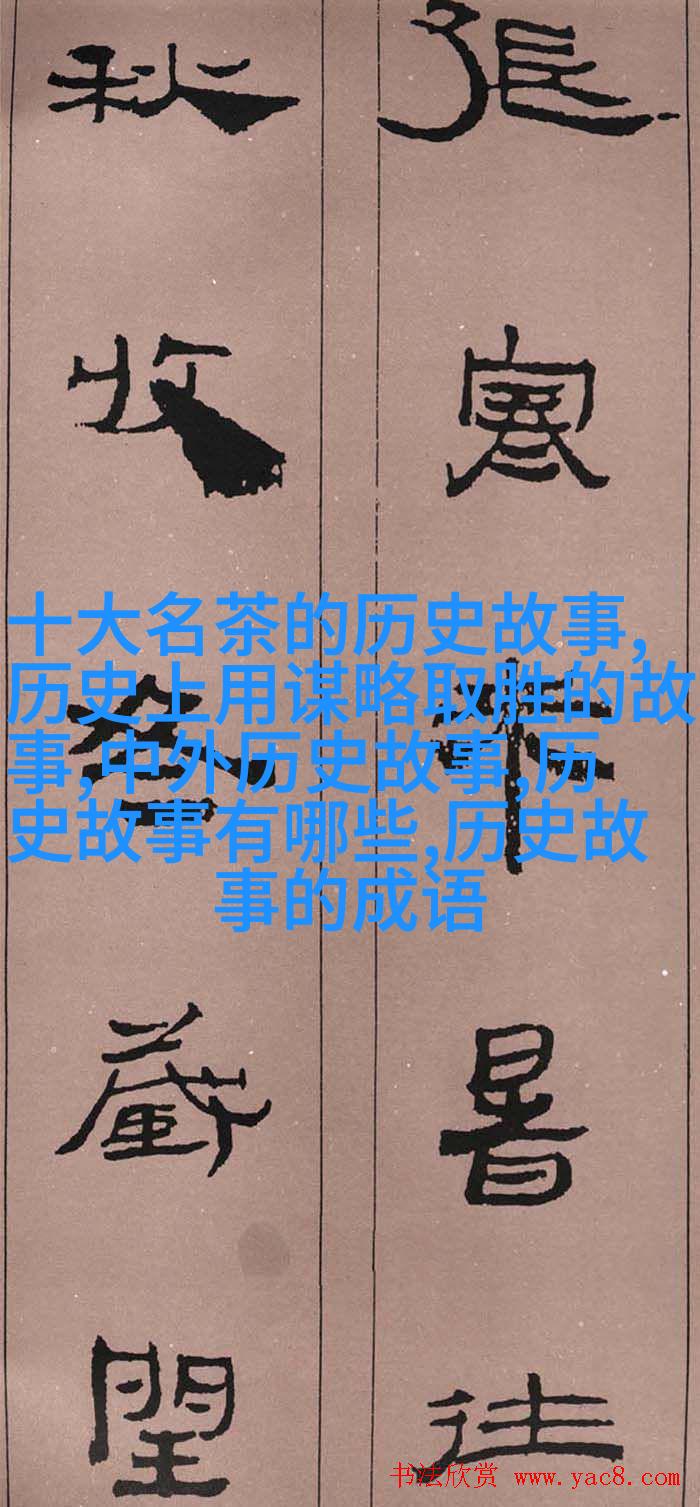 張寒來暑往
秋收冬藏閏
十大名茶的历史故事,
历史上用谋略取胜的故
事,中外历史故事,历
史故事有哪些,历史故
事的成语
书法欣赏 www.yac8.com